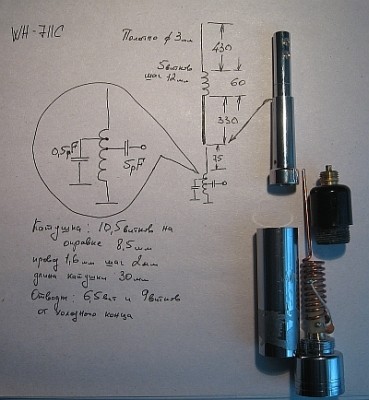 WH-711C
Полотно ф 3мм
430
5витков
шаг 12мм
60
330
75
0,5pF
5pF
Катушка: 10,5витков на
оправке 8,5мм
провод 1,6мм шаг 2мм
длина катушки 30мм
Отводы: 6,5вит и 9витков
от холодного конца